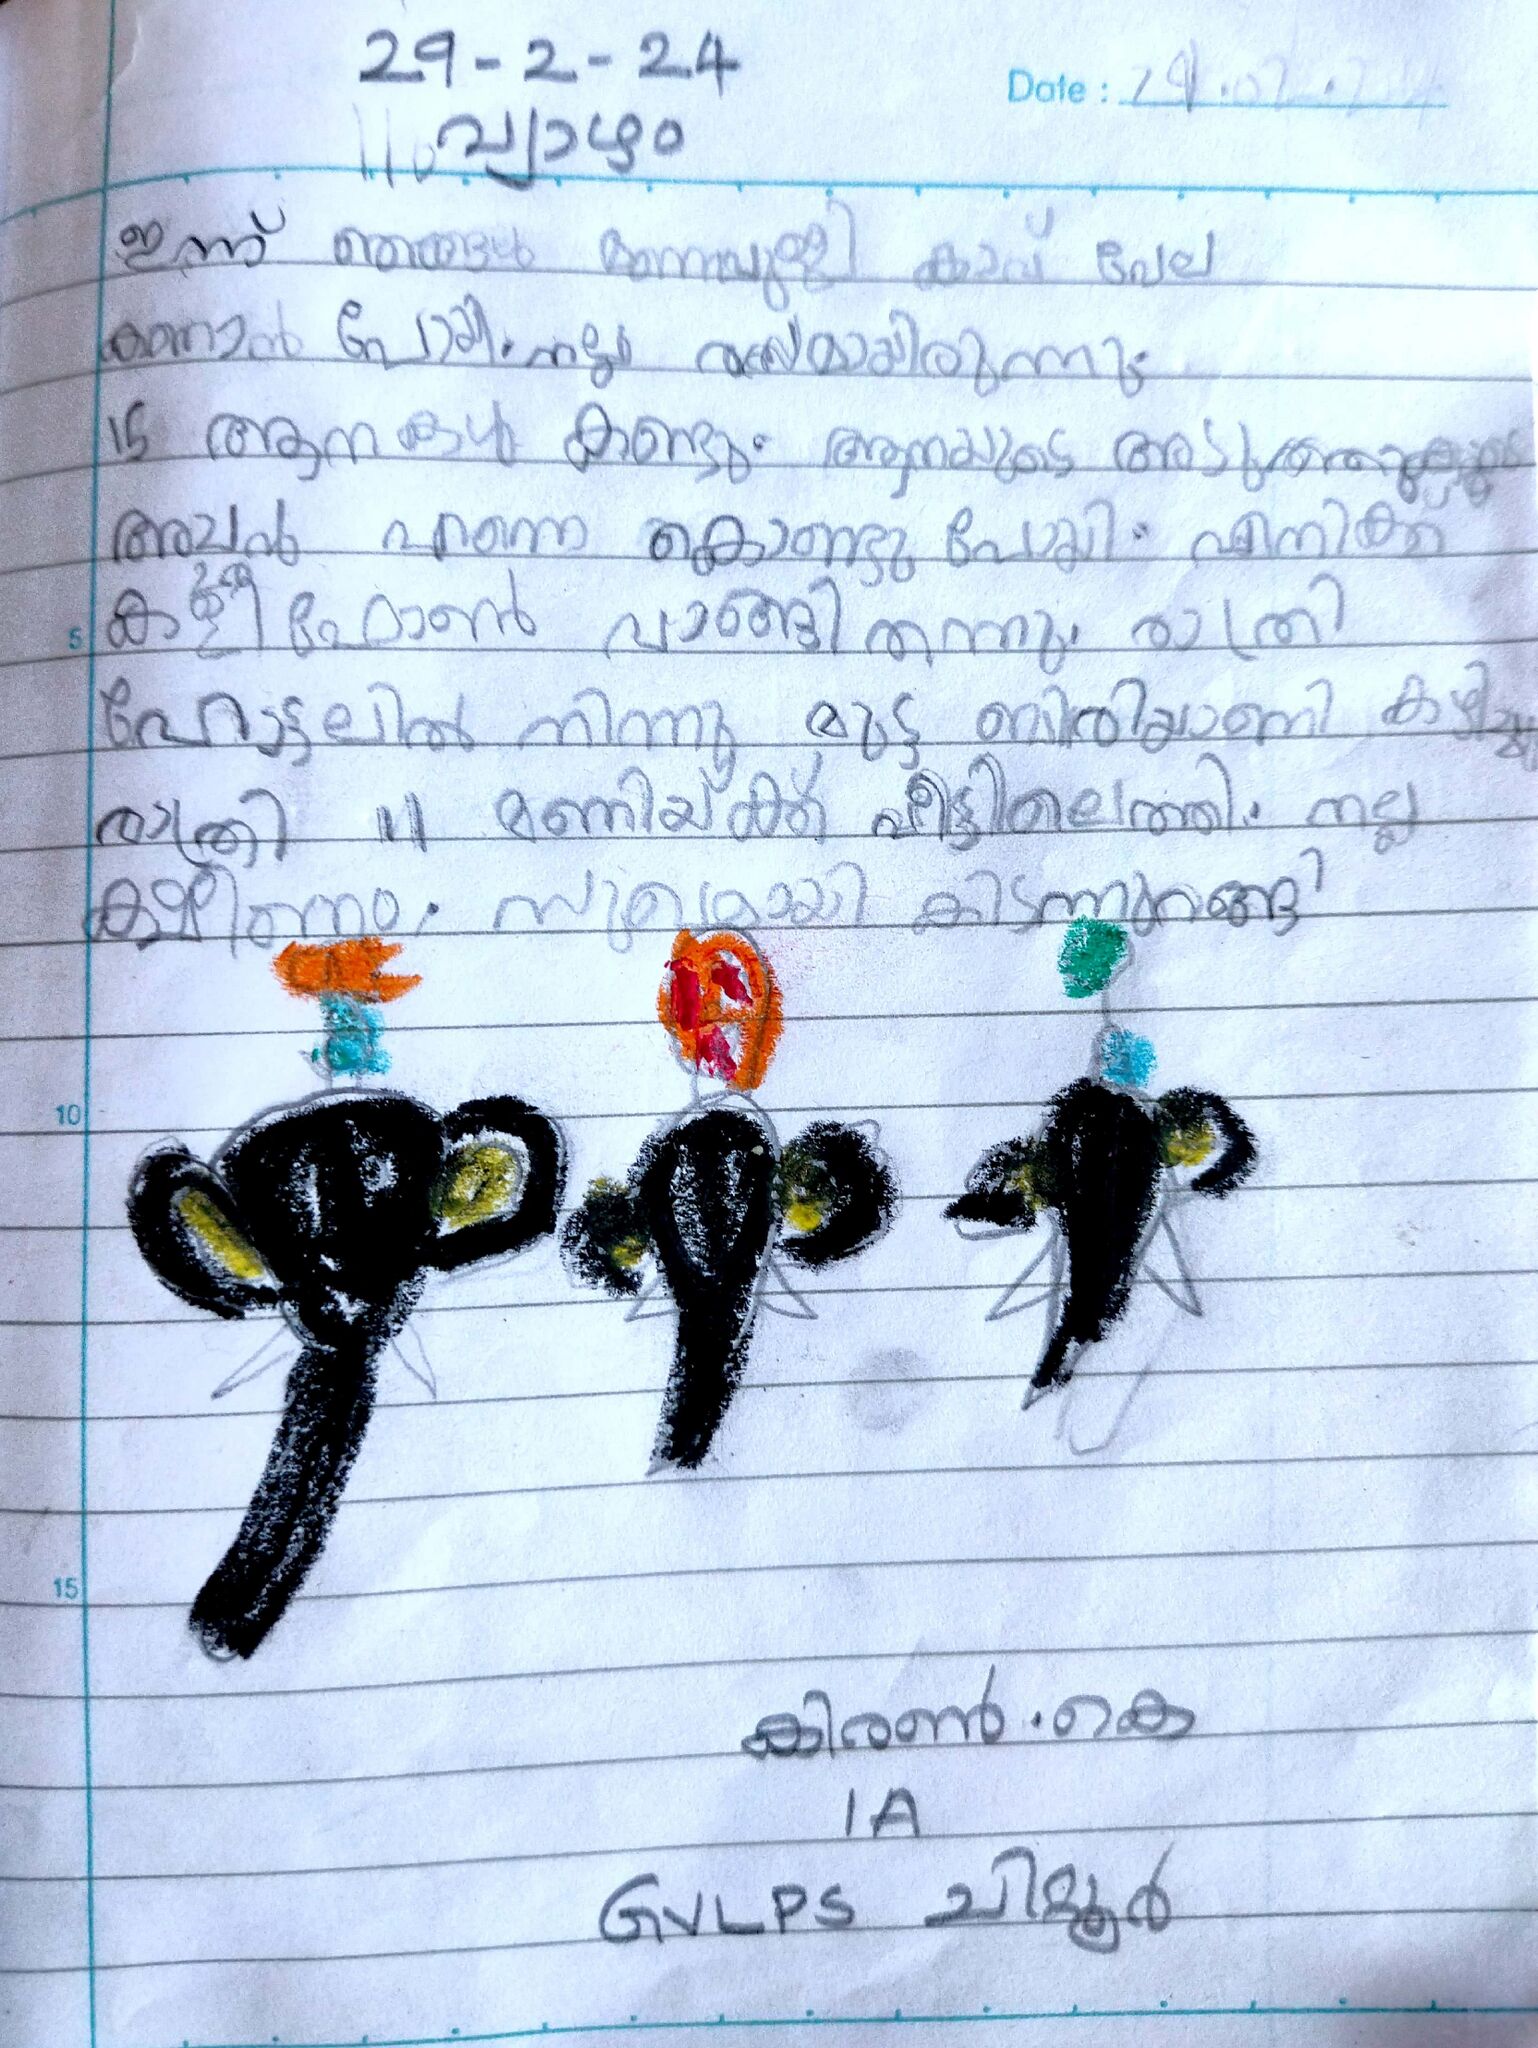 29-2-24
Date : 29.02.24
വ്യാഴം
ഇന്ന് ഞങ്ങൾ മണപ്പുള്ളി കാവ് വേല
കണാൻ പോയി. നല്ല രസമായിരുന്നു.
15 ആനകൾ കണ്ടു. ആനയുടെ അടുത്തേക്ക്
അച്ഛൻ എന്നെ കൊണ്ടു പോയി. എനിക്ക്
5 കളി ഫോൺ വാങ്ങി തന്നു. രാത്രി
ഹോട്ടലിൽ നിന്നു മുട്ട ബിരിയാണി കഴിച്ചു
രാത്രി 11 മണിയ്ക്ക് വീട്ടിലെത്തി. നല്ല
ക്ഷീണം. സുഖമായി കിടന്നുറങ്ങി
10
15
കിരൺ.കെ
1A
GVLPS ചിറ്റൂർ